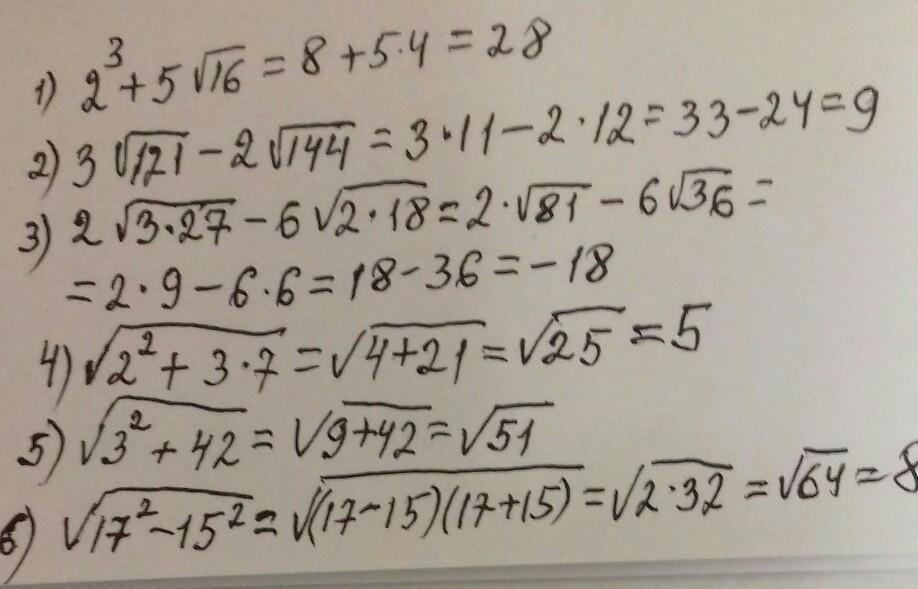 1) 2³ + 5√16 = 8 + 5·4 = 28
2) 3√121 − 2√144 = 3·11 − 2·12 = 33 − 24 = 9
3) 2√(3·27) − 6√(2·18) = 2·√81 − 6√36 =
= 2·9 − 6·6 = 18 − 36 = −18
4) √(2² + 3·7) = √(4+21) = √25 = 5
5) √(3² + 42) = √(9+42) = √51
6) √(17² − 15²) = √((17−15)(17+15)) = √(2·32) = √64 = 8